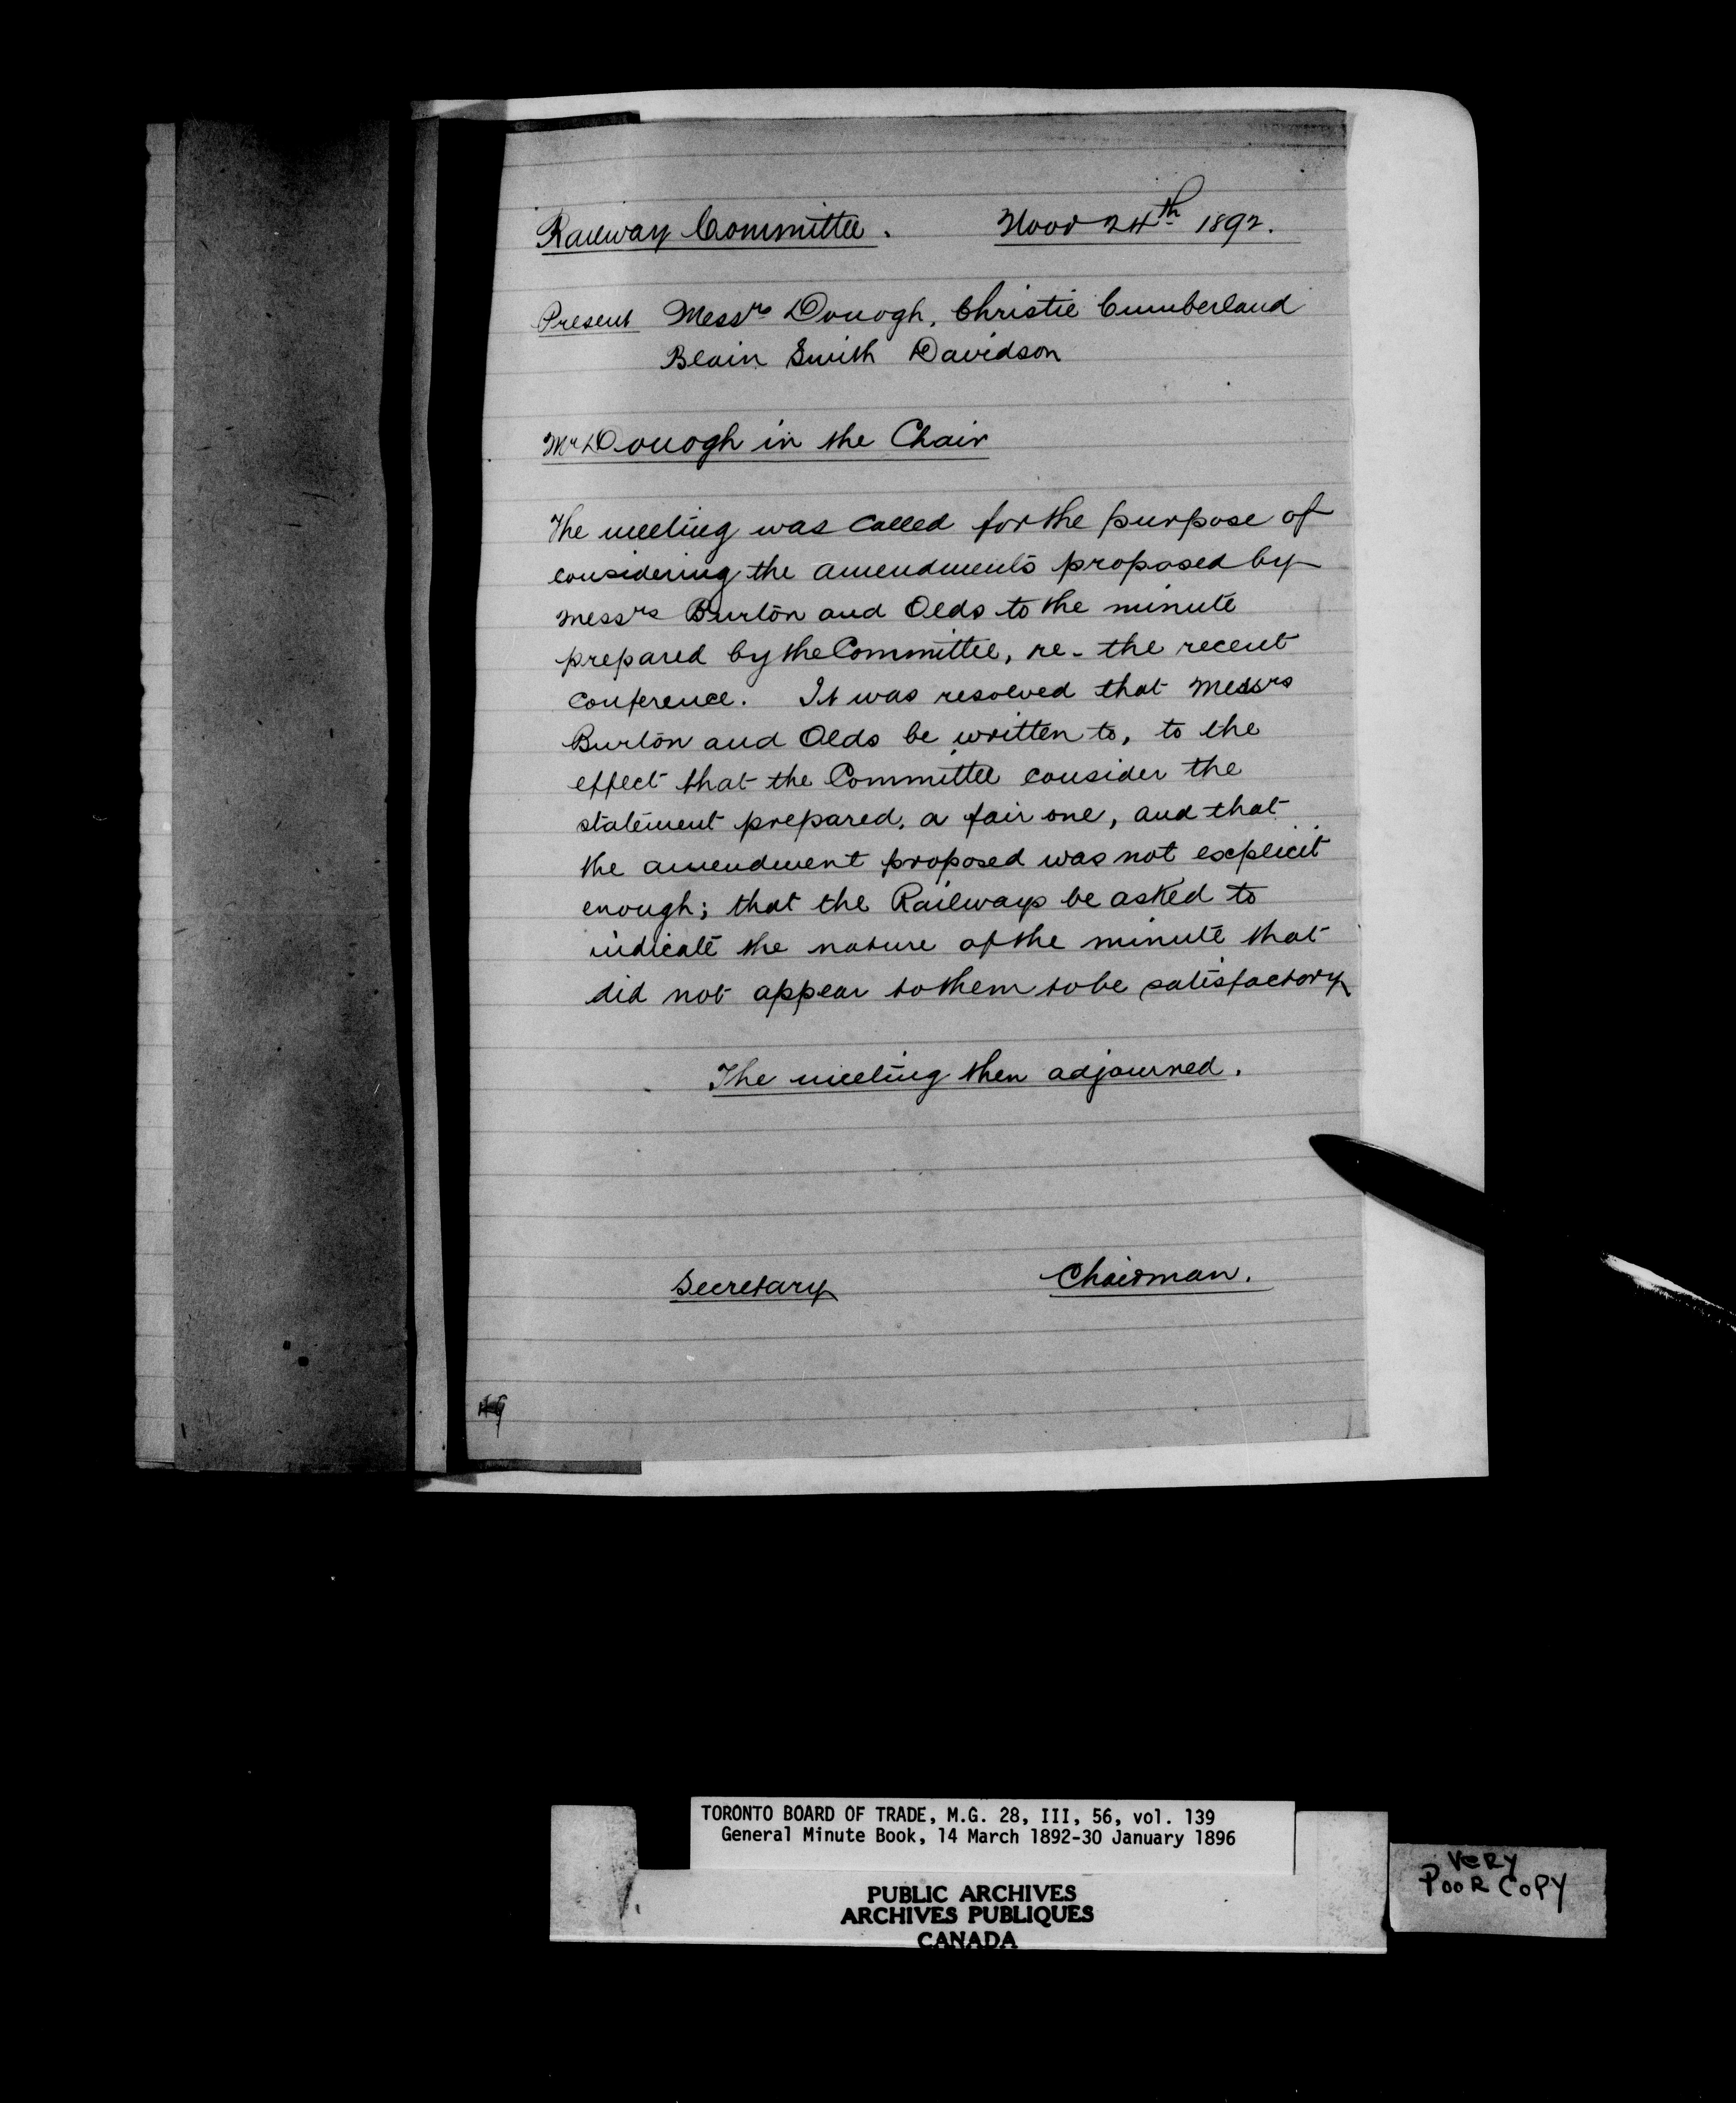 Railway Committee. Novr 24th 1892.
Present Messrs Donogh, Christie Cumberland
Blain Smith Davidson
Mr Donogh in the Chair
The meeting was called for the purpose of
considering the amendments proposed by
Messrs Burton and Olds to the minute
prepared by the Committee, re- the recent
conference. It was resolved that Messrs
Burton and Olds be written to, to the
effect that the Committee consider the
statement prepared, a fair one, and that
the amendment proposed was not explicit
enough; that the Railways be asked to
indicate the nature of the minute that
did not appear to them to be satisfactory
The meeting then adjourned.
Secretary Chairman.
TORONTO BOARD OF TRADE, M.G. 28, III, 56, vol. 139
General Minute Book, 14 March 1892-30 January 1896
PUBLIC ARCHIVES
ARCHIVES PUBLIQUES
CANADA
VERY
POOR COPY